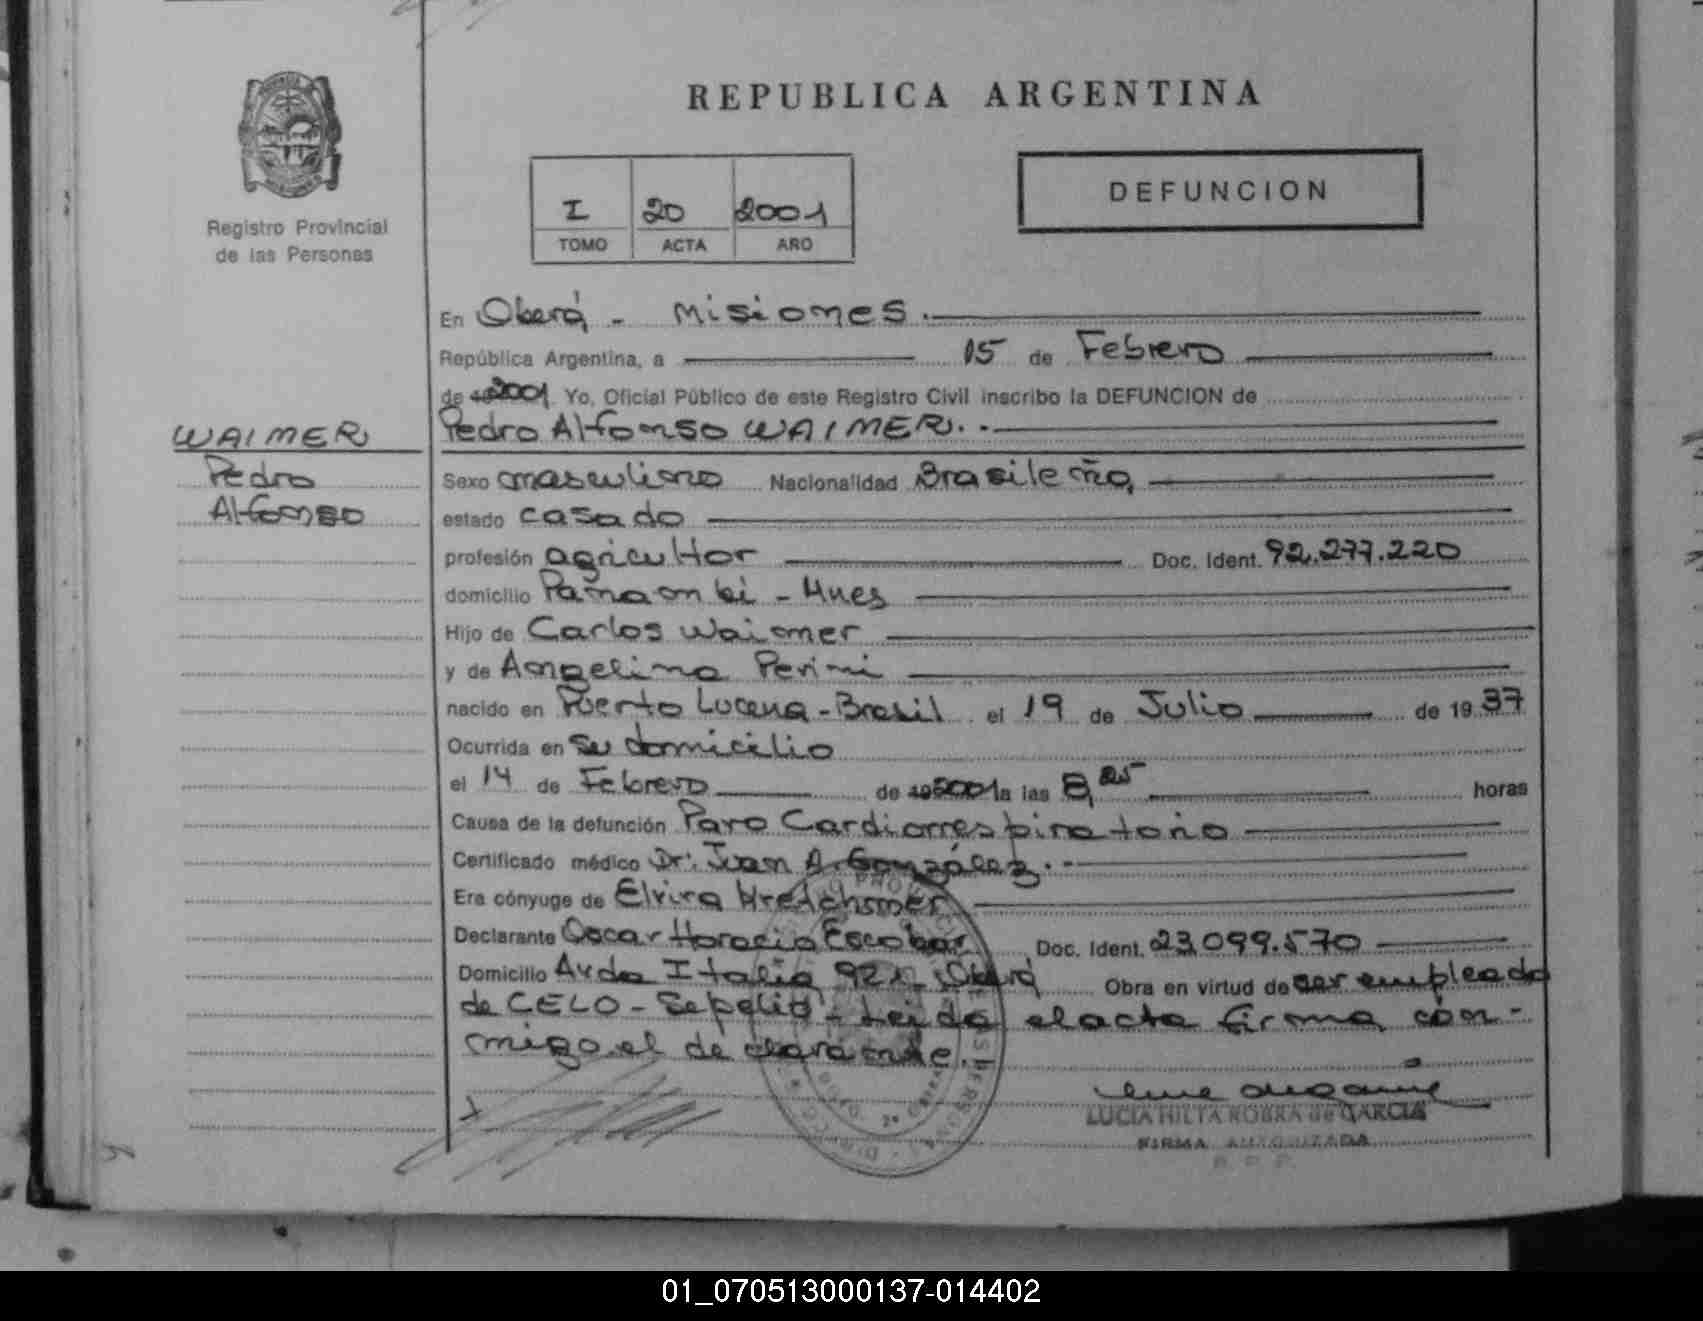 REPUBLICA ARGENTINA
Registro Provincial
de las Personas
I 20 2001
TOMO ACTA AÑO
DEFUNCION
En Oberá - Misiones.
República Argentina, a 15 de Febrero
de 2001 Yo, Oficial Público de este Registro Civil inscribo la DEFUNCION de
WAIMER
Pedro Alfonso WAIMER.-
Pedro
Alfonso
Sexo masculino Nacionalidad Brasileña,
estado casado
profesión agricultor Doc. Ident. 92.277.220
domicilio Panambi - Mnes
Hijo de Carlos Waimer
y de Angelina Perini
nacido en Puerto Lucena - Brasil el 19 de Julio de 19 37
Ocurrida en su domicilio
el 14 de Febrero de 2001 a las 8,25 horas
Causa de la defunción Paro Cardiorrespiratorio
Certificado médico Dr. Juan A. González.-
Era cónyuge de Elvira
Declarante Oscar Horacio Escobar Doc. Ident. 23.099.570
Domicilio Avda Italia 921 Oberá Obra en virtud de ser empleado
de CELO - Sepelio - Leida el acta firma con-
migo el declarante.
LUCIA HILTA ROBRA de GARCIA
FIRMA AUTORIZADA
R. P. P.
01_070513000137-014402